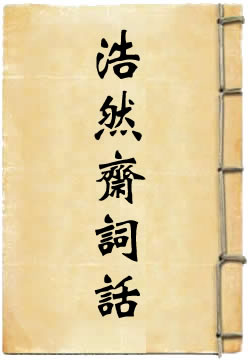 浩然齋詞話